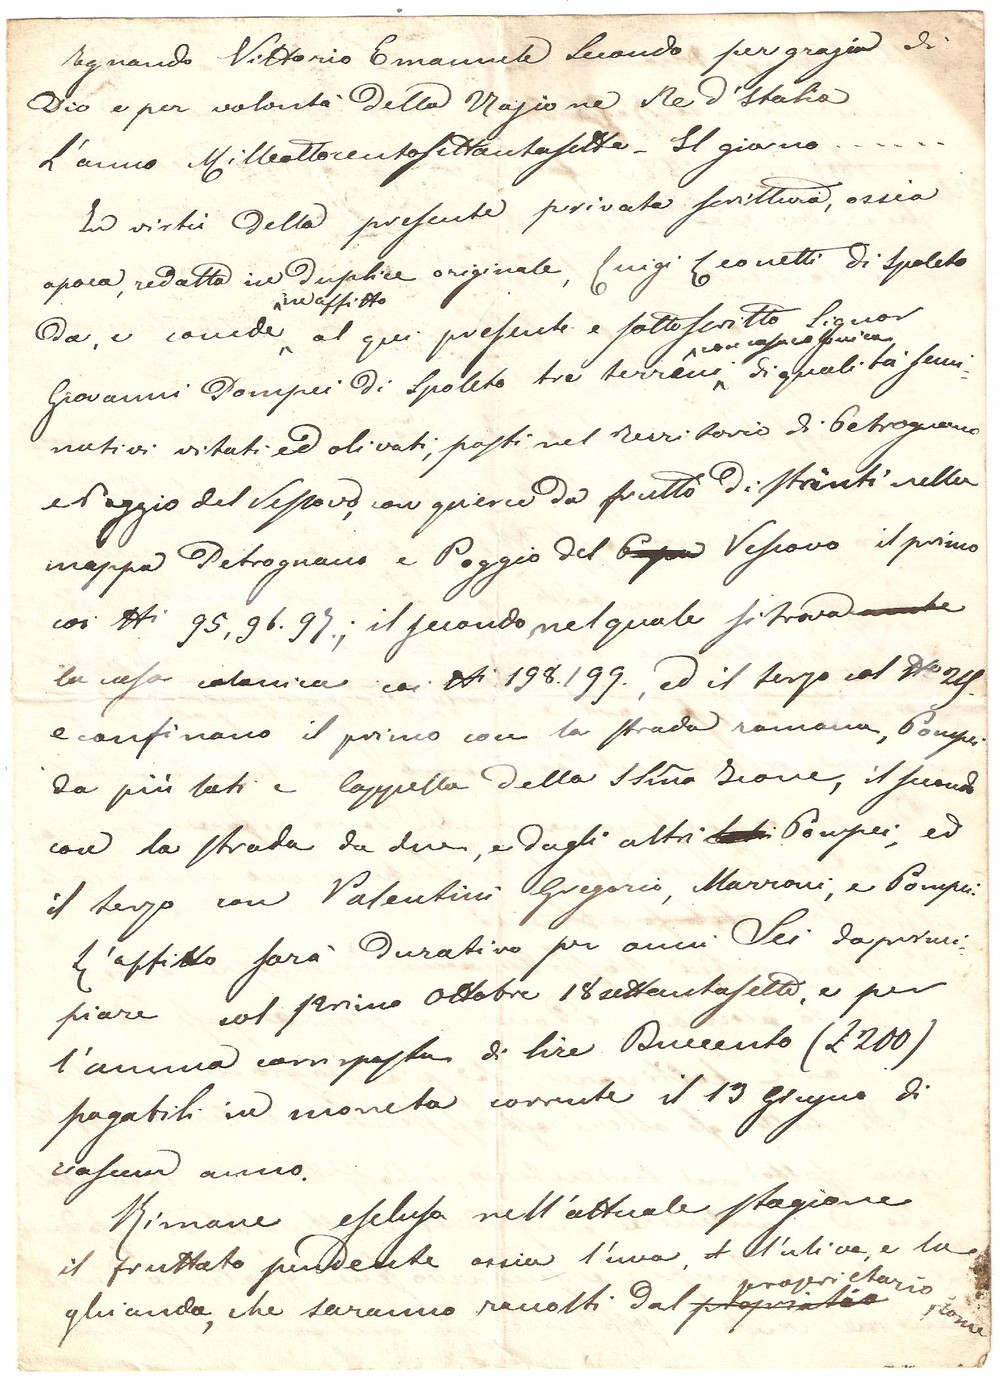 Regnando Vittorio Emanuele Secondo per grazia di
Dio e per volontà della Nazione Re d'Italia
L'anno Milleottocentosettantasette - Il giorno ......
In virtù della presente privata scrittura, ossia
apoca, redatta in duplice originale, Luigi Leonetti di Spoleto
in affitto
Dà, e concede al qui presente e sottoscritto Signor
con casa colonica
Giovanni Pompei di Spoleto tre terreni di qualità semi-
nativi vitati ed olivati, posti nel Territorio di Petrognano
e Poggio del Vescovo, con querce da frutto distinti nella
mappa Petrognano e Poggio del Vescovo il primo
coi Nri 95, 96. 97.; il secondo, nel quale si trova anche
la casa colonica coi Nri 198. 199., ed il terzo col No
e confinano il primo con la strada romana, Pompei
da più lati e Cappella della Ssma, il secondo
con la strada da due, e dagli altri lati Pompei, ed
il terzo con Valentini Gregorio, Marroni, e Pompei.
L'affitto sarà durativo per anni Sei da princi-
piare col primo Ottobre 18settantasette, e per
l'annua corrisposta di lire Duecento (£200)
pagabili in moneta corrente il 13 Giugno di
ciascun anno.
Rimane esclusa nell'attuale stagione
il fruttato pendente ossia l'uva, l'ulive, e la
proprietario, come
ghianda, che saranno raccolti dal